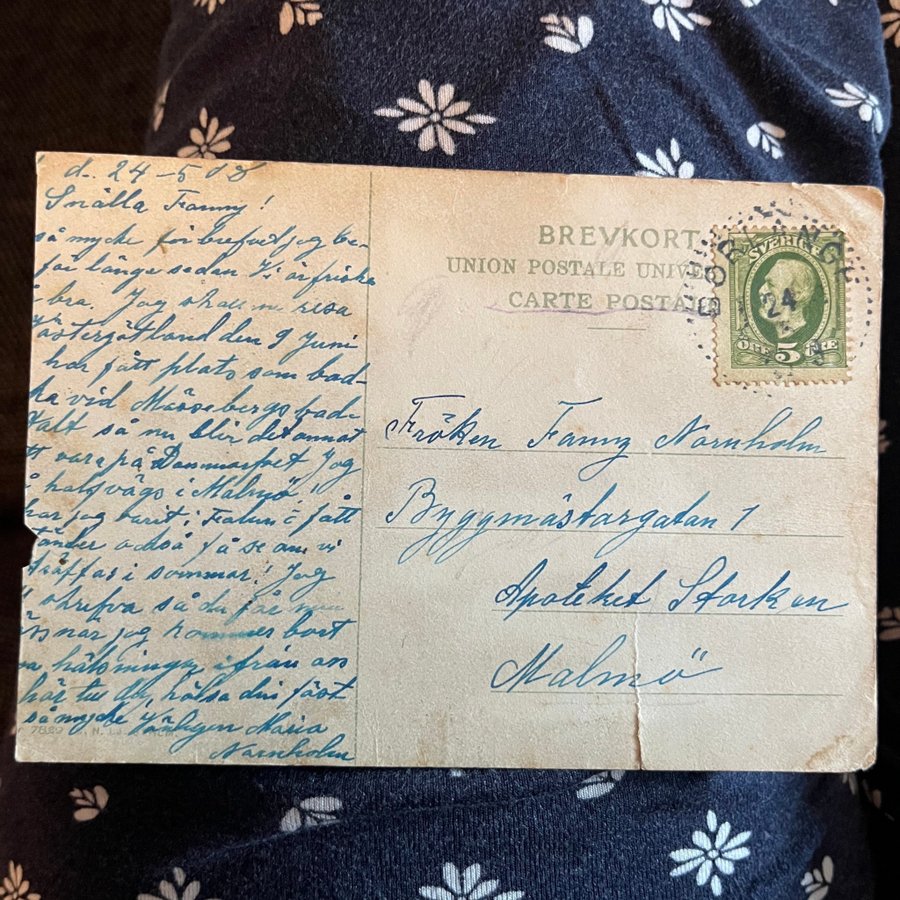 d. 24-5 08
Snälla Fanny!
så mycke för brefvet jag be-
för länge sedan Vi är friska
bra. Jag skall n resa
Västergötland den 9 Juni
har fått plats som bad-
vid Mössebergs bad-
så nu blir det annat
vara på Danmarket Jag
halfvägs i Malmö!
har jag varit i Falun å fått
tänder också få se om vi
träffas i sommar! Jag
skrifva så du får
när jag kommer bort
hälsningar ifrån oss
här till dig, hälsa din fäst
så mycke Vänligen Maria
Narnholm
BREVKORT
UNION POSTALE UNIVE
CARTE POSTALE
SVERIGE
24
ÖRE 5 ÖRE
Fröken Fanny Narnholm
Byggmästargatan 1
Apoteket Storken
Malmö